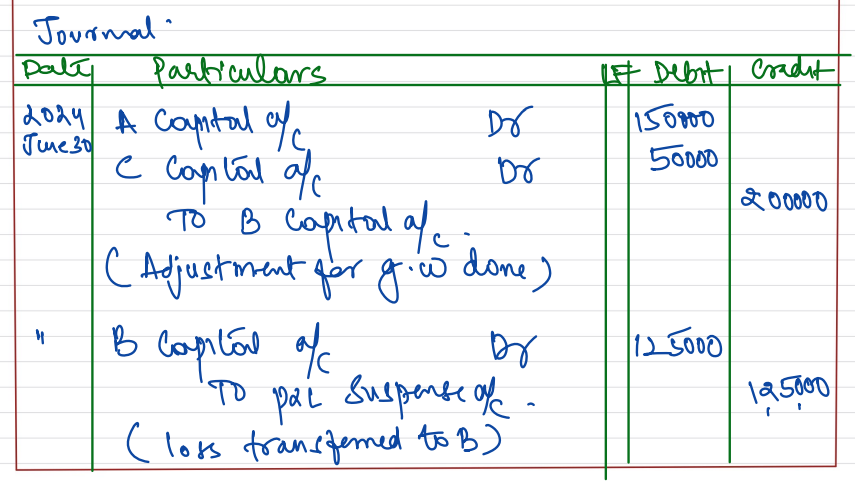 Journal
Date Particulars LF Debit Credit
2024 A Capital a/c Dr 150000
June 30
C Capital a/c Dr 50000
To B Capital a/c 200000
(Adjustment for g.w done)
" B Capital a/c Dr 125000
To P&L Suspense a/c. 125000
(loss transferred to B)